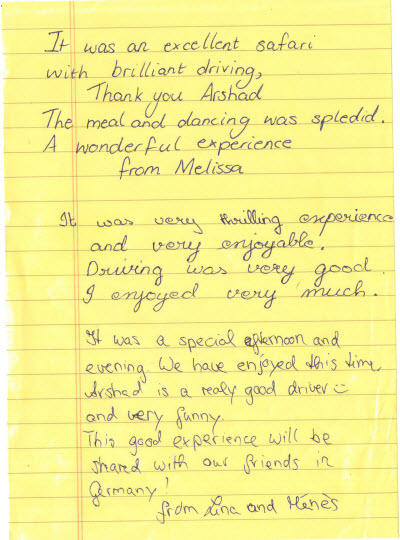 It was an excellent safari
with brilliant driving,
Thank you Arshad
The meal and dancing was spledid.
A wonderful experience
from Melissa
It was very thrilling experience
and very enjoyable.
Driving was very good.
I enjoyed very much.
It was a special afternoon and
evening. We have enjoyed this time,
Arshad is a realy good driver
and very funny.
This good experience will be
shared with our friends in
Germany!
from Lina and